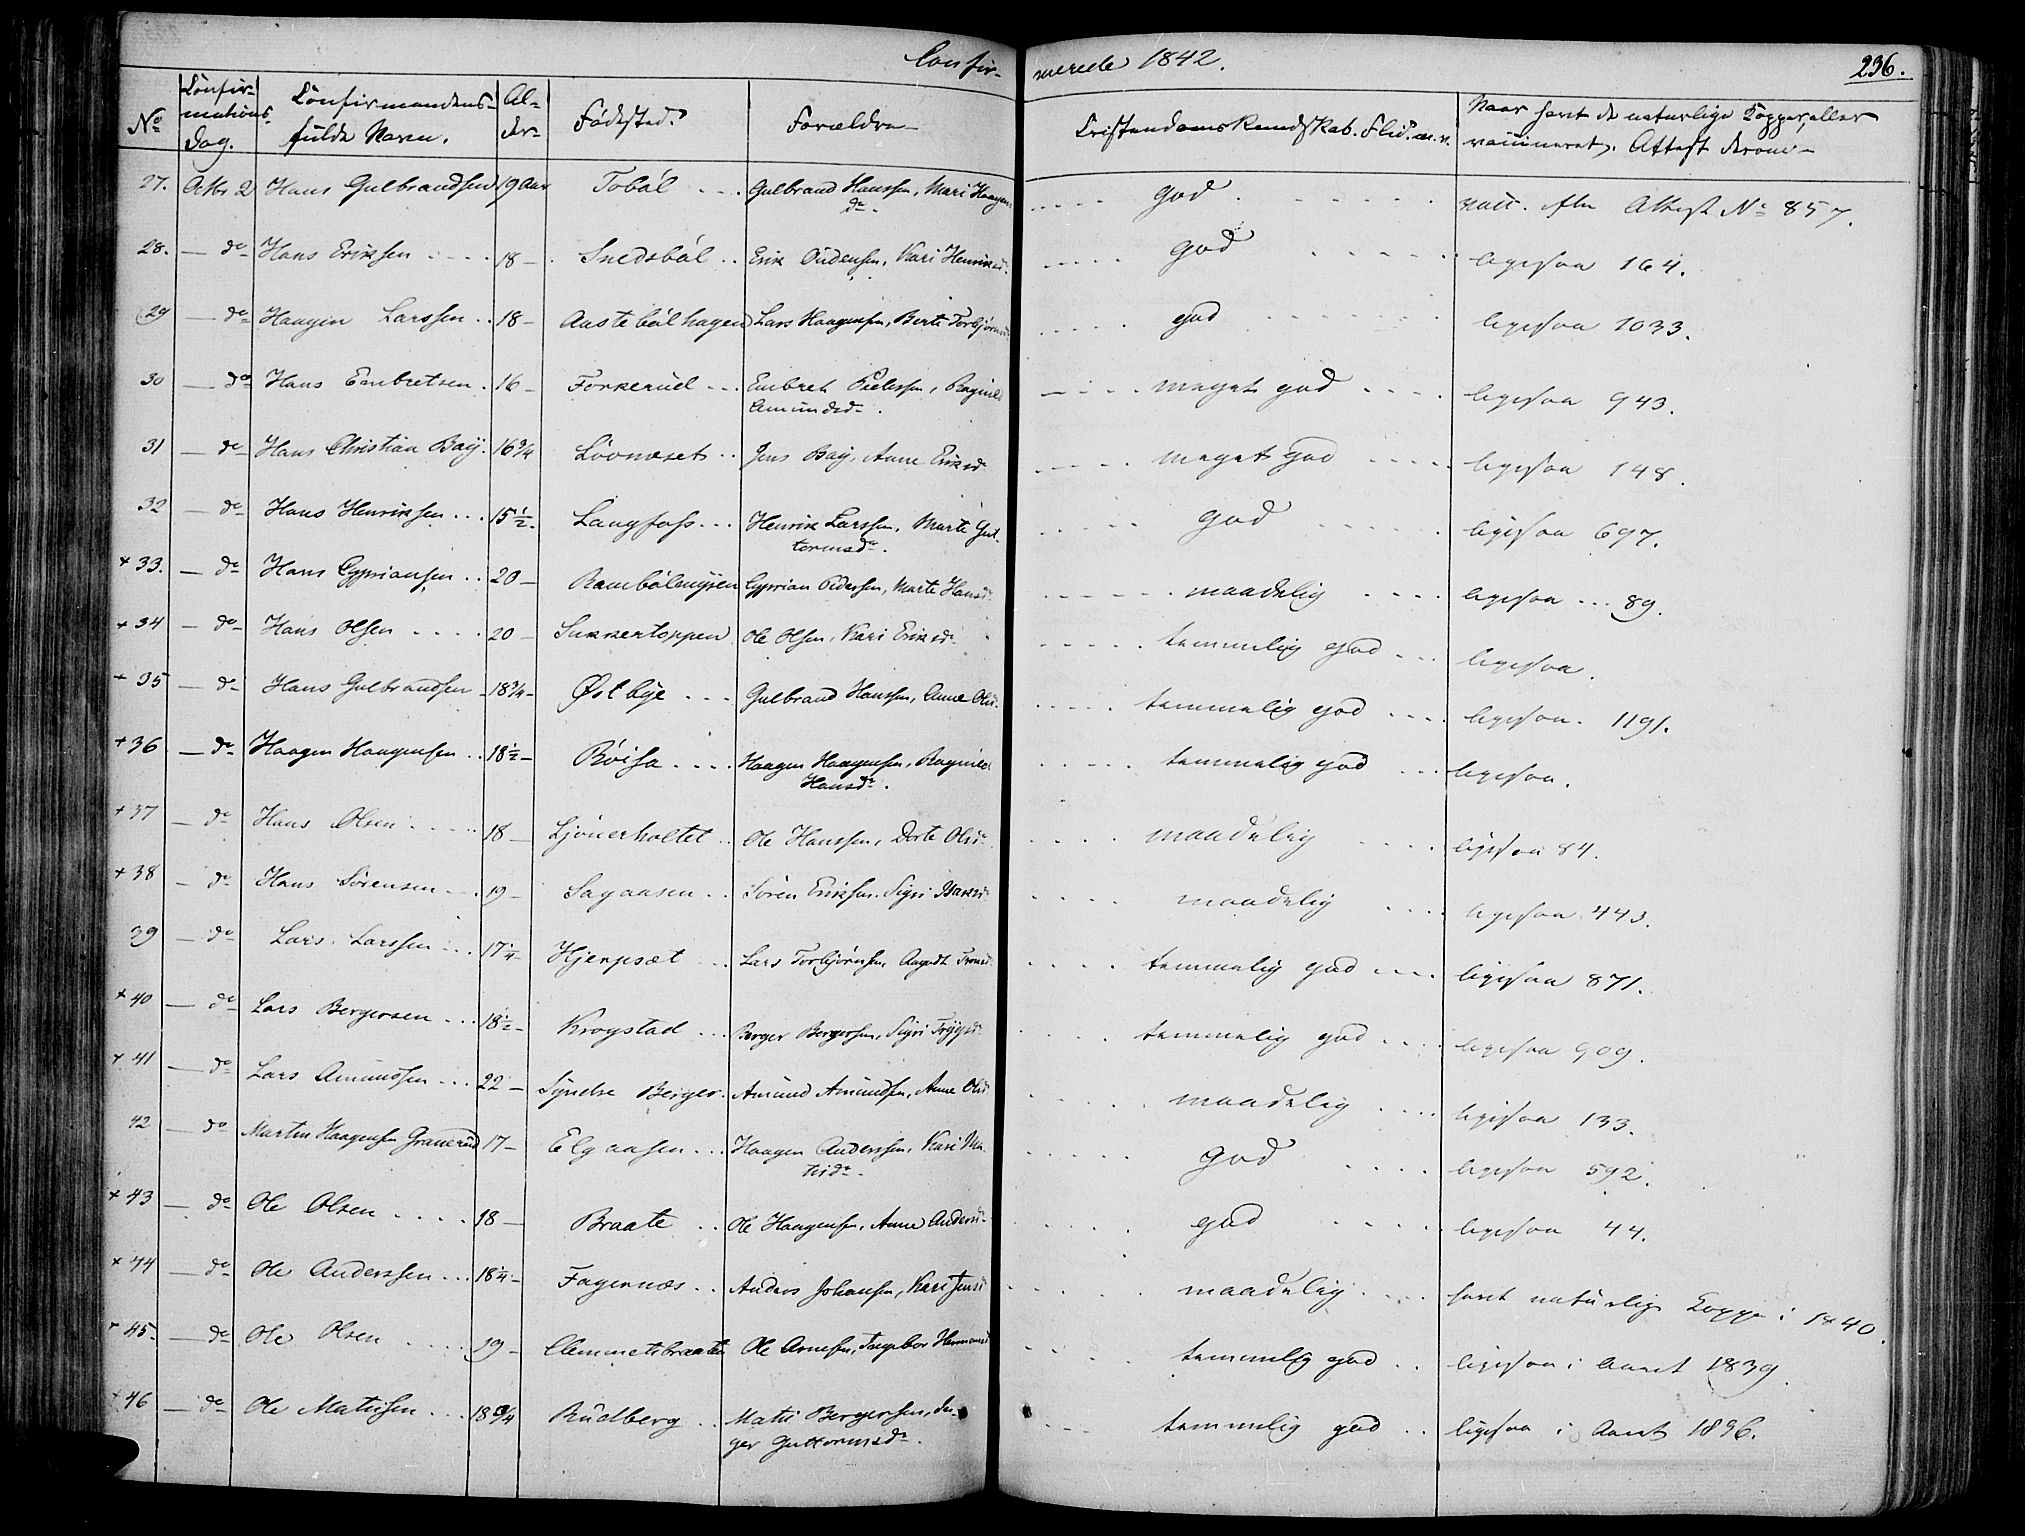 Confirmerede 1842. 236.
No | Confirmations Dag. | Confirmandens fulde Navn. | Alder | Fødested. | Forældre | Cristendomskundskab. Flid. m. v. | Naar havt de naturlige Kopper, eller vaccineret, Attest derom
27. | Octbr 2 | Hans Gulbrandsen | 19 Aar | Tobøl | Gulbrand Hanssen, Mari Haagens do | God | vacc. efter Attest No 857.
28. | do | Hans Eriksen | 18 | Snedsbøl | Erik Oudensen, Kari Henriksd. | god | ligesaa 164.
29 | do | Haagen Larssen | 18 | Aastebølhagen | Lars Haagensen, Berte Torbjørnsd | god | ligesaa 1033.
30 | do | Hans Embretsen | 16 | Forkerud | Embret Peelssen, Ragnild Amundsd. | meget god | ligesaa 943.
31 | do | Hans Christian Baÿ | 16 3/4 | Løvnæset | Jens Baÿ, Anne Eriksd | meget god | ligesaa 148.
32 | do | Hans Henriksen | 15 1/2 | Langfoss | Henrik Larssen, Marte Guttormsd. | god | ligesaa 697.
+ 33. | do | Hans Cyprianssen | 20 | Rambølmyren | Cyprian Pedersen, Marte Hansd | maadelig | ligesaa 89.
+ 34 | do | Hans Olsen | 20 | Sukkertoppen | Ole Olsen, Kari Eriksd. | temmelig god | ligesaa.
+ 35 | do | Hans Gulbrandsen | 18 3/4 | Østbye | Gulbrand Hanssen, Anne Olsd. | temmelig god | ligesaa. 1191.
+ 36 | do | Haagen Haagensen | 18 1/2 | Røisa | Haagen Haagensen, Ragnild Hansd. | temmelig god | ligesaa.
+ 37 | do | Hans Olsen | 18 | Ljønerholtet | Ole Hanssen, Dorte Olsd. | maadelig | ligesaa 84.
+ 38 | do | Hans Sørensen | 19 | Sagaasen | Søren Eriksen, Sigri Isaksd. | maadelig | ligesaa 443.
39 | do | Lars Larssen | 17 1/4 | Hjerpsæt | Lars Torbjørnsen, Aagodt Tronsd | temmelig god | ligesaa 871.
+ 40 | do | Lars Bergersen | 18 1/2 | Krogstad | Berger Bergersen, Sigri Trygsd. | temmelig god | ligesaa 909.
+ 41 | do | Lars Amundsen | 22 | Syndre Berger | Amund Amundsen, Anne Olsd | maadelig | ligesaa 133.
42 | do | Martin Haagensen Granerud | 17 | Elgaasen | Haagen Anderssen, Kari Matisd. | god | ligesaa 592.
+ 43 | do | Ole Olsen | 18 | Braate | Ole Haagensen, Anne Andersd. | god | ligesaa 44.
+ 44 | do | Ole Anderssen | 18 1/4 | Fagernæs | Anders Johansen, Kari Jensd | maadelig | havt naturlige Kopper i 1840.
+ 45. | do | Ole Olsen | 19 | Clemmetsbraaten | Ole Arnesen, Ingebor Hermansd | temmelig god | ligesaa i Aaret 1839.
+ 46 | do | Ole Mathisen | 18 3/4 | Rudberg | Matis Bergersen, Inger Guttormsd. | temmelig god | ligesaa i Aaret 1836.